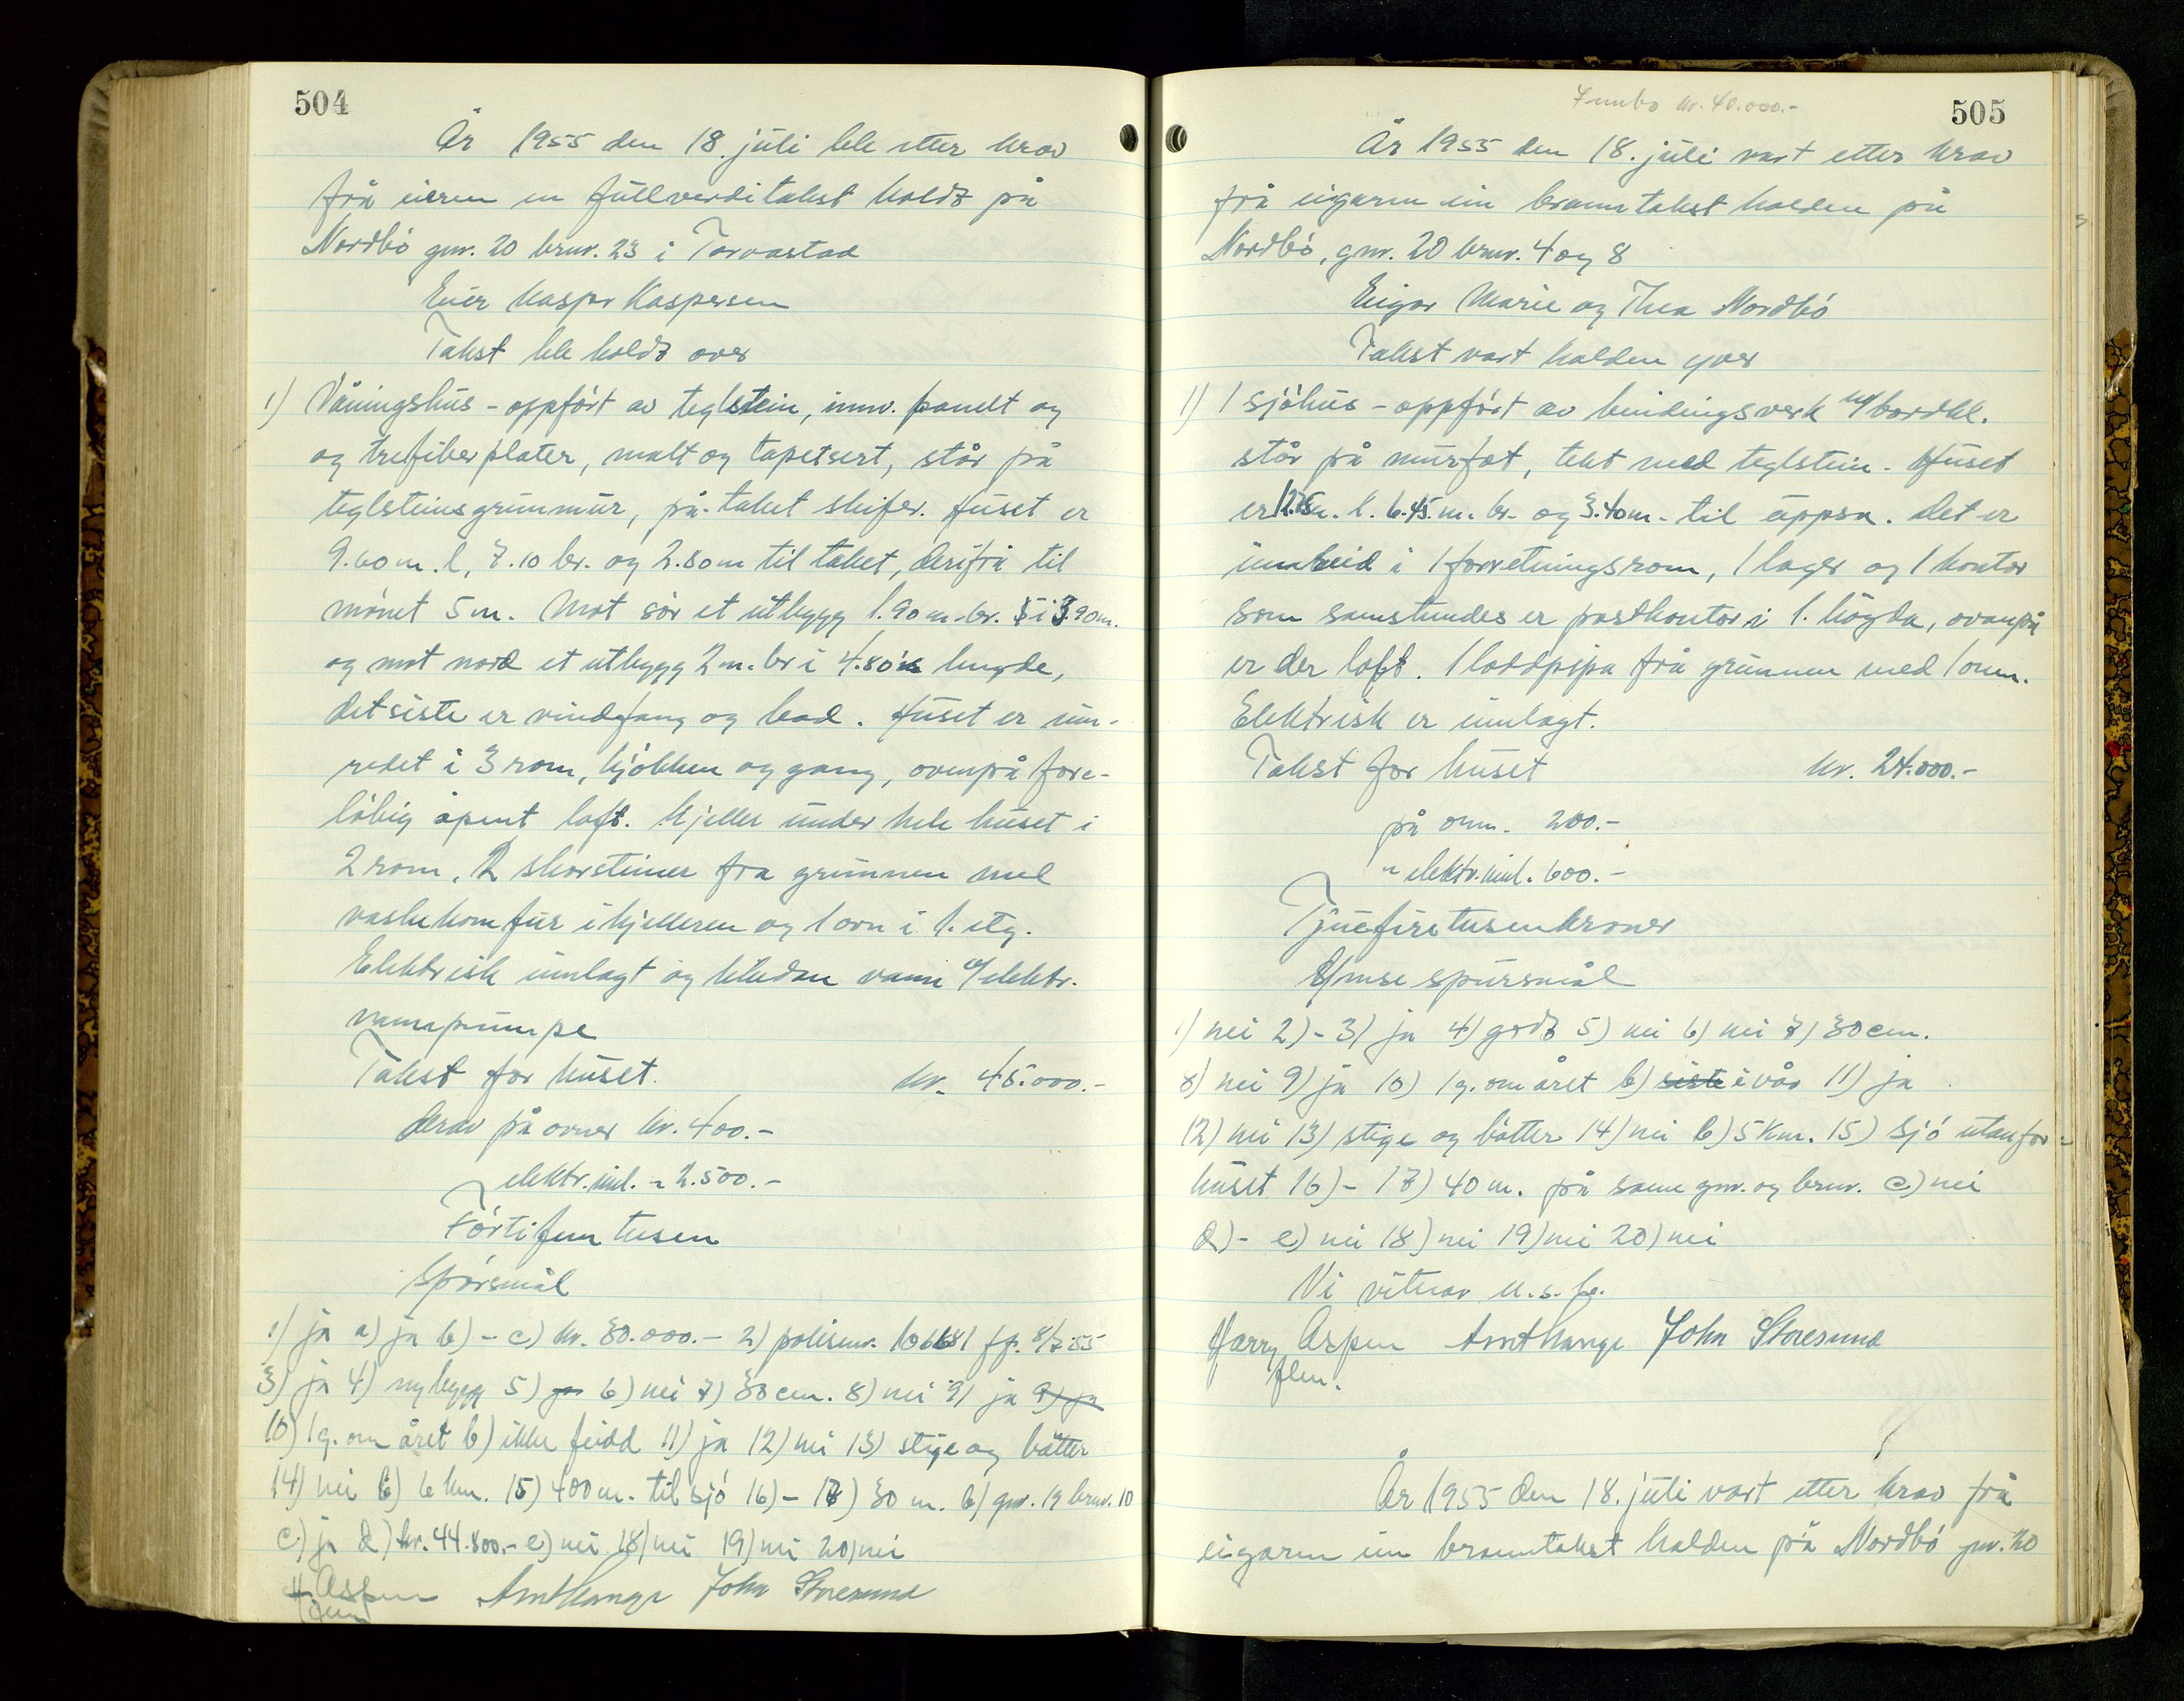 504
År 1955 den 18. juli ble etter krav
frå eieren en fullverditakst holdt på
Nordbö gnr. 20 brnr. 23 i Torvastad
Eier Kaspar Kaspersen
Takst ble holdt over
1) Våningshus - oppfört av teglstein, innv. panelt og
og trefiberplater, malt og tapetsert, står på
teglsteinsgrunnmur, på taket skifer. Huset er
9.60 m. l, 7.10 br. og 2.80 m til taket, derifrå til
mönet 5 m. Mot sör et utbygg 1.90 m. br. i 3.90 m.
og mot nord et utbygg 2 m. br i 4.80 m lengde,
det siste er vindfang og bad. Huset er inn-
redet i 3 rom, kjökken og gang, ovenpå fore-
löbig åpent loft. Kjeller under hele huset i
2 rom. 2 skorsteiner fra grunnen med
vaskekomfur i kjelleren og 1 ovn i 1. etg.
Elektrisk innlagt og likedan vann m/elektr.
vannpumpe
Takst for huset. kr. 45.000.-
derav på ovner kr. 400.-
elektr. innl. " 2.500.-
Förtifem tusen
Spörsmål
1) ja a) ja b) - c) kr. 30.000.- 2) polisenr. 166681 ff. 8/7-55
3) ja 4) nybygg 5) ja 6) nei 7) 30 cm. 8) nei 9) ja 9) ja
10) 1 g. om året b) ikke feidd 11) ja 12) nei 13) stige og bötter
14) nei b) 6 km. 15) 400 m. til sjö 16) - 17) 30 m. b) gnr. 19 brnr. 10
c) ja d) kr. 44.800.- e) nei 18) nei 19) nei 20) nei
H. Aspen Arnt Hauge John Storesund
505
kr. 40.000.-
År 1955 den 18. juli vart etter krav
frå eigaren ein branntakst halden på
Nordbö, gnr. 20 brnr. 4 og 8
Eigar Marie og Thea Nordbö
Takst vart halden yver
1) 1 sjöhus - oppfört av bindingsverk m/bordkl.
står på murfot, tekt med teglstein. Huset
er 12.25 m. l. 6.45 m. br. og 3.40 m. til uppsa. Det er
innreid i 1 forretningsrom, 1 lager og 1 kontor
som samstundes er postkontor i 1. högda, ovanpå
er der loft. 1 loddpipa frå grunnen med 1 omn.
Elektrisk er innlagt.
Takst for huset kr. 24.000.-
på omn. 200.-
" elektr. innl. 600.-
Tjuefiretusenkroner
Ymse spursmål
1) nei 2) - 3) ja 4) godt 5) nei 6) nei 7) 30 cm.
8) nei 9) ja 10) 1 g. om året b) siste i vår 11) ja
12) nei 13) stige og bötter 14) nei b) 5 km. 15) Sjö utanfor
huset 16) - 17) 40 m. på same gnr. og brnr. c) nei
d) - e) nei 18) nei 19) nei 20) nei
Vi vitnar u.s.fr.
Harry Aspen Arnt Hauge John Storesund
År 1955 den 18. juli vart etter krav frå
eigaren ein branntakst halden på Nordbö gnr. 20